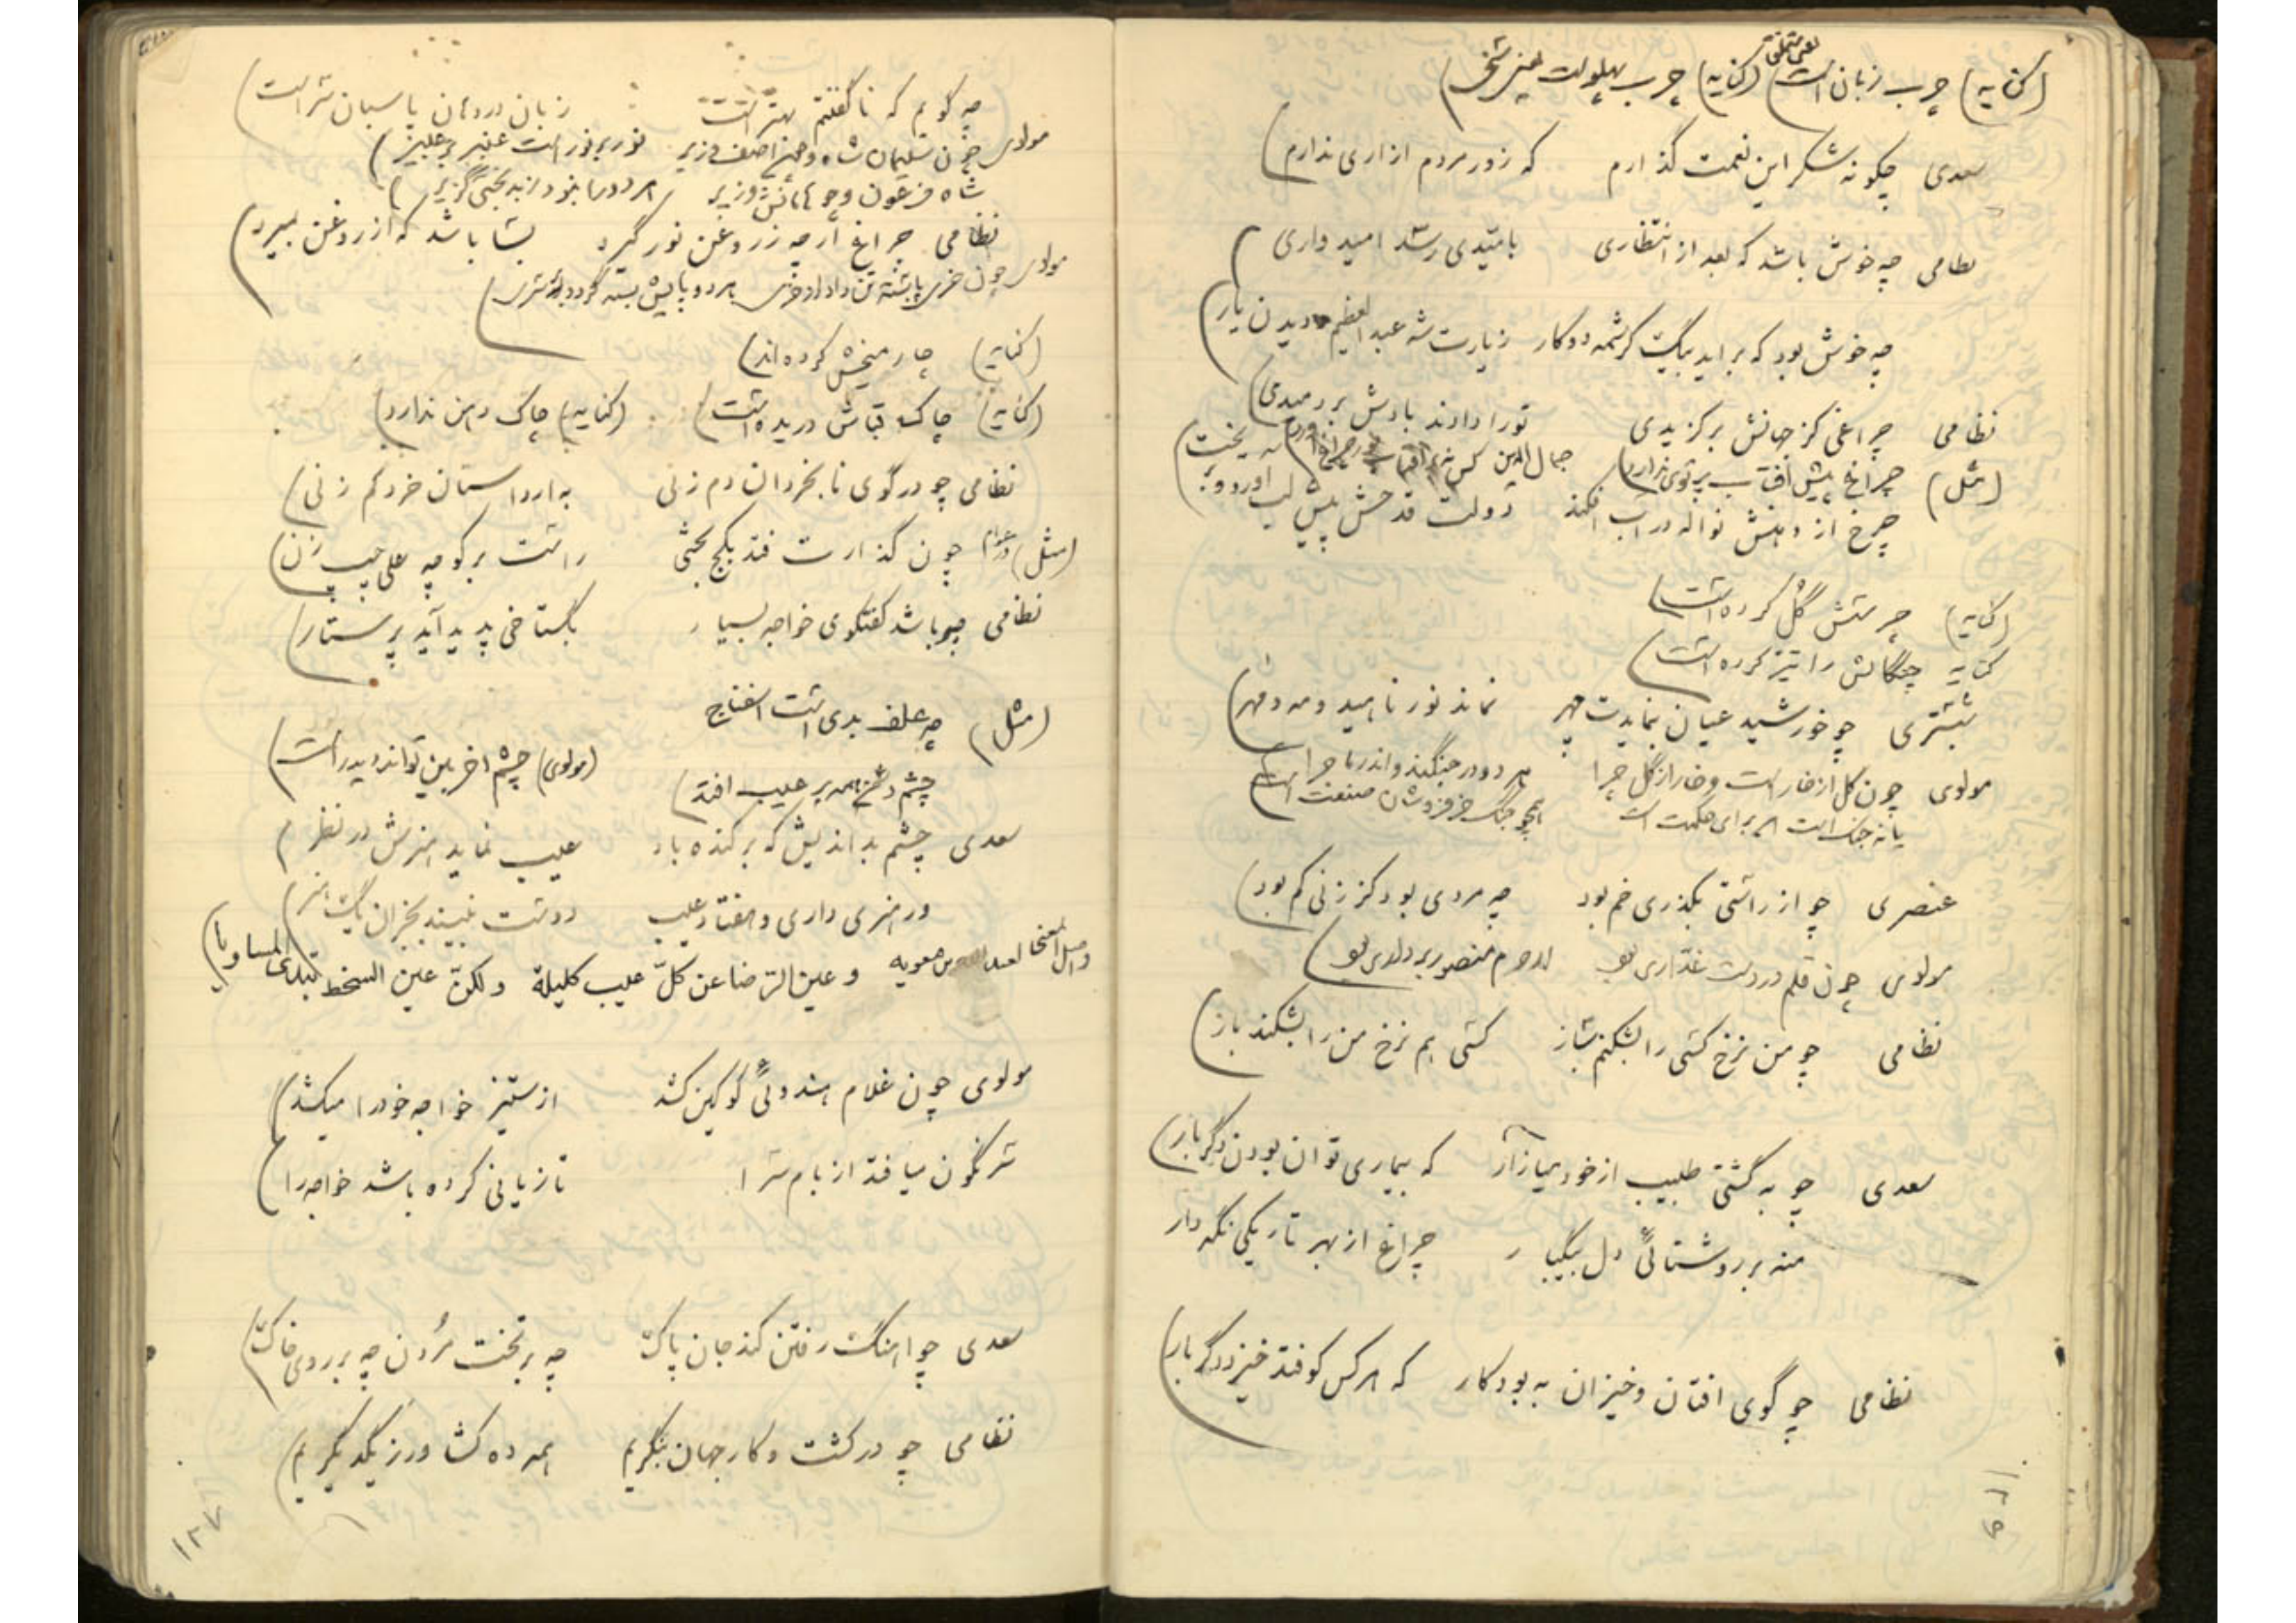 (کنایه) چرب زبان است (کنایه) چرب پهلوست یعنی
یعنی متملق
سعدی چگونه شکر این نعمت گذارم که زور مردم ازاری ندارم
نظامی چه خوش باشد که بعد از انتظاری بامیدی رسد امیدواری
چه خوش بود که براید بیک کرشمه دوکار زیارت شه عبدالعظیم و دیدن یار
نظامی چراغی کز جهانش برگزیدی تو را دادند بادش بر دمیدی
(مثل) چراغ پیش افتاب پرتوی ندارد جمال الدین کس نزد افتاب چراغ
چرخ از دهنش نواله در اب افکند دولت قدحش پیش لب اورد و بریخت
(کنایه) چرسش گل کرده است
کنایه چنگالش را تیز کرده است
شبستری چو خورشید عیان بنمایدت چهر نماند نور ناهید و مه و مهر
مولوی چون گل از خار است و خار از گل چرا هر دو در جنگند و اندر ماجرا
یا نه جنگ است این برای حکمت است همچو جنگ خر فروشان صنعت است
عنصری چو از راستی بگذری خم بود چه مردی بود کز زنی کم بود
مولوی چون قلم در دست غداری بود لاجرم منصور بر داری بود
نظامی چو من نرخ کسی را بشکنم ساز کسی هم نرخ من را بشکند باز
سعدی چو به گشتی طبیب از خود میازار که بیماری توان بودن دگر بار
منه بر روشنائی دل بیکبار چراغ از بهر تاریکی نگه دار
نظامی چو گوی افتان و خیزان به بود کار که هر کس کو فتد خیزد دگر بار
چه گویم که ناگفتنم بهتر است زبان در دهان پاسبان سر است
مولوی چون سلیمان شاه و چون اصف وزیر نور بر نور است عنبر بر عبیر
شاه فرعون و چو هامانش وزیر هر دو را نبود ز بدبختی گزیر
نظامی چراغ ار چه ز روغن نور گیرد بسا باشد که از روغن بمیرد
مولوی چون خری پابسته تن داد از خری هر دو پایش بسته گردد بر سری
(کنایه) چار میخش کرده اند
(کنایه) چاک قباش دریده است (کنایه) چاک دهن ندارد
نظامی چو در گوی نابخردان دم زنی به ار داستان خرد کم زنی
(مثل) چون گذارت فتد بکج بختی راست برگو چه علی چپ زن
نظامی چو باشد گفتگوی خواجه بسیار بگستاخی پدید آید پرستار
(مثل) چه علف بدی است اسفناج
چشم دشمن همه بر عیب افتد (مولوی) چشم اخر بین تواند دید راست
سعدی چشم بداندیش که برکنده باد عیب نماید هنرش در نظر
ور هنری داری و هفتاد عیب دوست نبیند بجز ان یک هنر
معویه و عین الرضا عن کل عیب کلیلة ولکن عین السخط تبدی المساویا
مولوی چون غلام هندوئی کو کین کشد از ستیز خواجه خود را میکشد
سرنگون میافتد از بام سرا تا زیانی کرده باشد خواجه را
سعدی چو اهنگ رفتن کند جان پاک چه بر تخت مردن چه بر روی خاک
نظامی چو در کشت و کار جهان بنگریم همه ده کشاورز یکدیگریم
۱۲۷